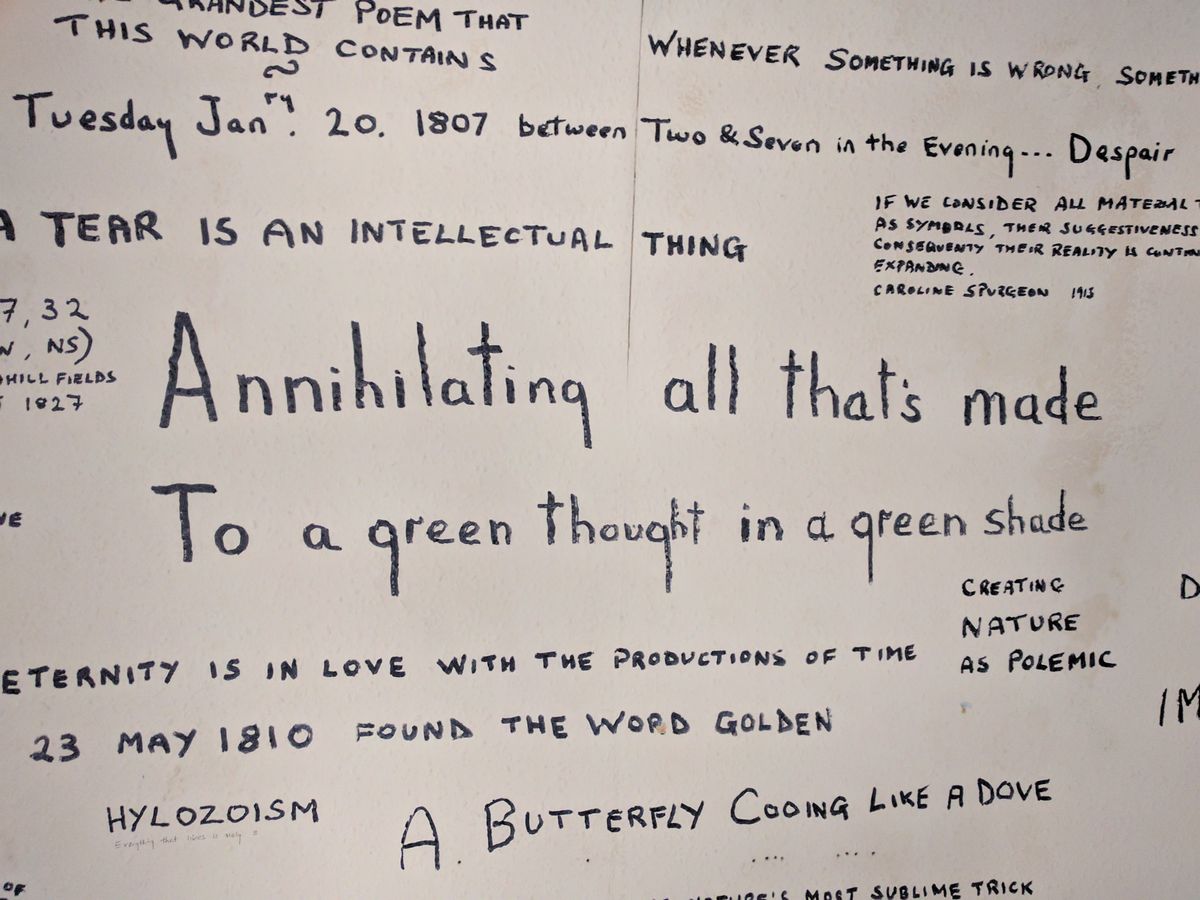 GRANDEST POEM THAT
THIS WORLD CONTAINS
WHENEVER SOMETHING IS WRONG, SOMETH
Tuesday Janry. 20. 1807 between Two & Seven in the Evening... Despair
A TEAR IS AN INTELLECTUAL THING
IF WE CONSIDER ALL MATERIAL T
AS SYMBOLS, THEIR SUGGESTIVENESS
CONSEQUENTY THEIR REALITY IS CONTIN
EXPANDING.
CAROLINE SPURGEON 1913
7, 32
W, NS)
HILL FIELDS
1827
Annihilating all that's made
To a green thought in a green shade
VE
CREATING
NATURE
AS POLEMIC
D
ETERNITY IS IN LOVE WITH THE PRODUCTIONS OF TIME
IM
23 MAY 1810 FOUND THE WORD GOLDEN
HYLOZOISM
Everything that lives is Holy
A BUTTERFLY COOING LIKE A DOVE
OF
NATURE'S MOST SUBLIME TRICK